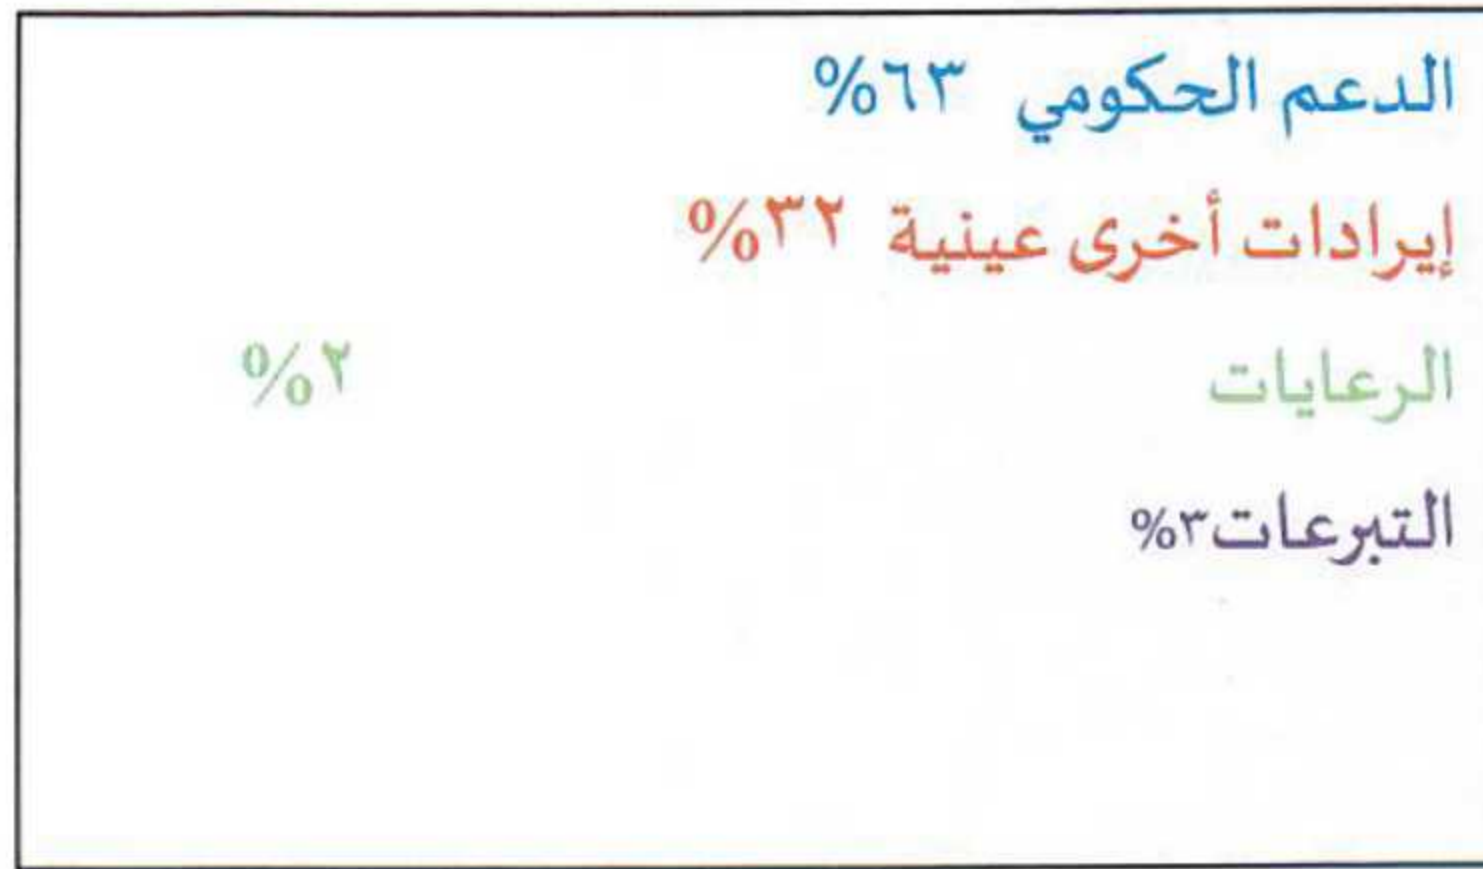 الدعم الحكومي ٦٣%
إيرادات أخرى عينية ٣٢%
الرعايات ٢%
التبرعات٣%